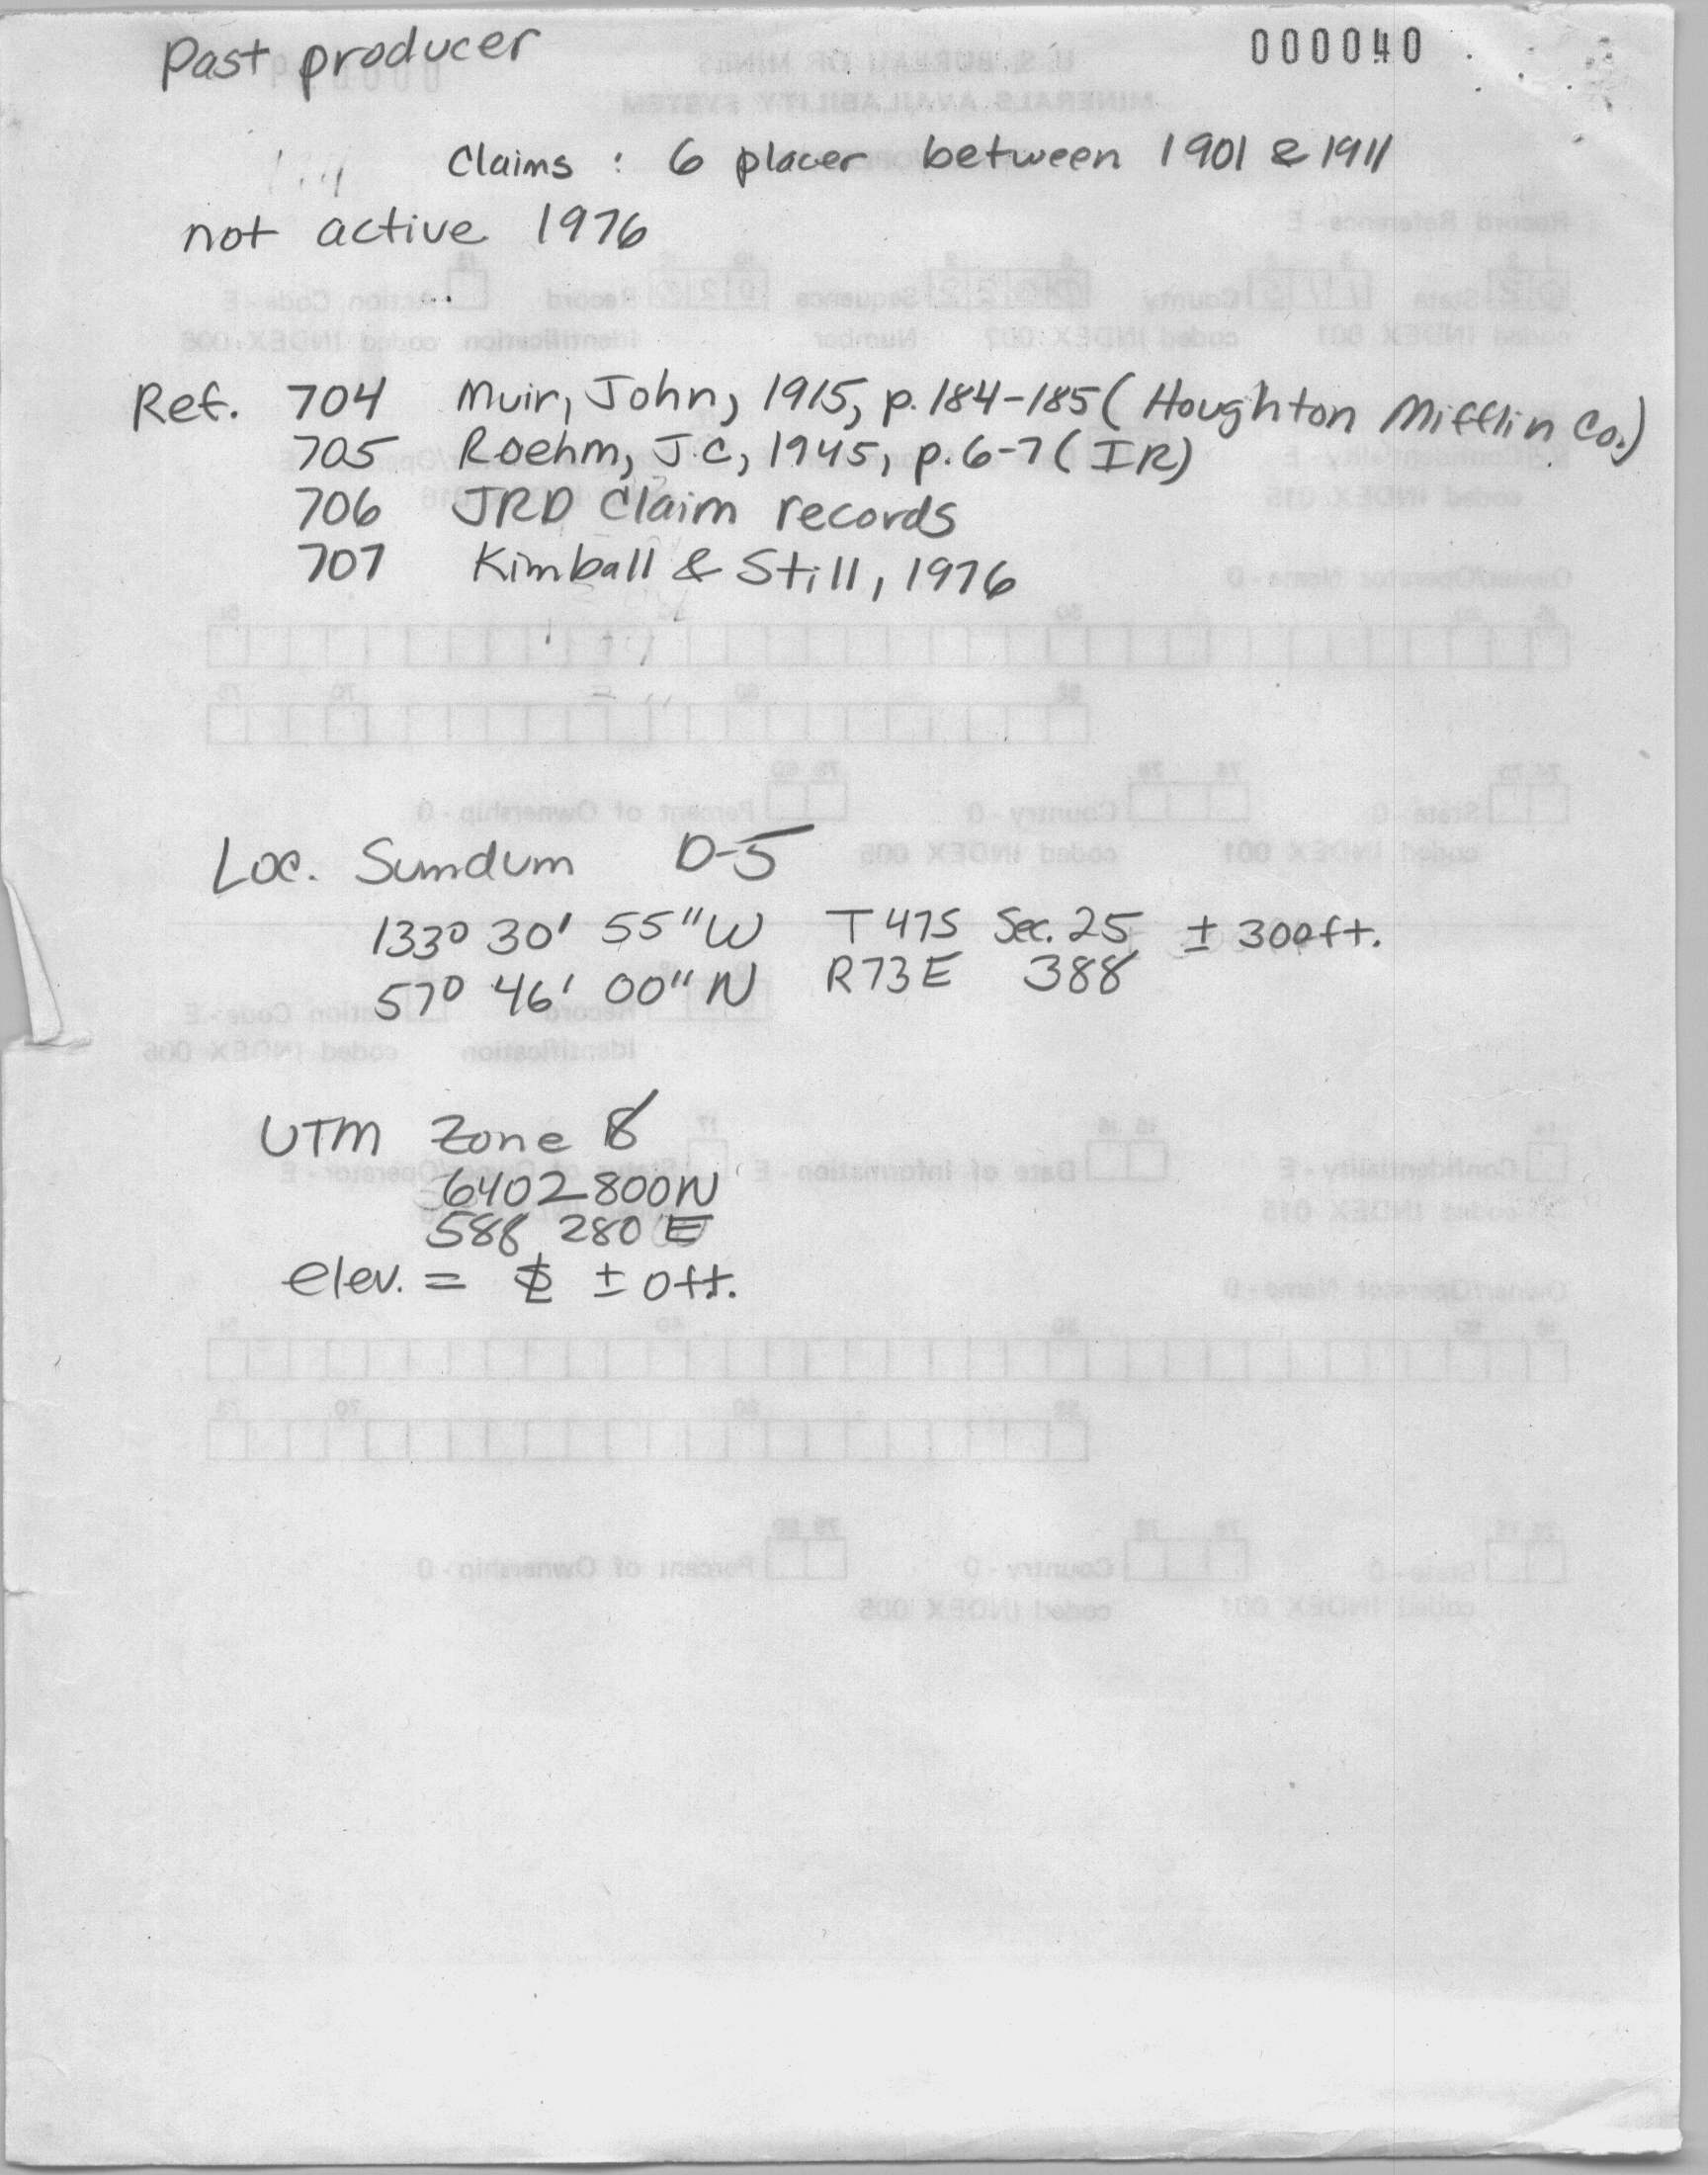 Past producer 000040
Claims : 6 placer between 1901 & 1911
not active 1976
Ref. 704 Muir, John, 1915, p. 184-185 (Houghton Mifflin Co.)
705 Roehm, J.C, 1945, p. 6-7 (IR)
706 JRD Claim records
707 Kimball & Still, 1976
Loc. Sumdum D-5
133° 30' 55" W T47S Sec. 25 ± 300ft.
57° 46' 00" N R73E 388
UTM Zone 8
6402800N
588 280 E
elev. = ± 0ft.